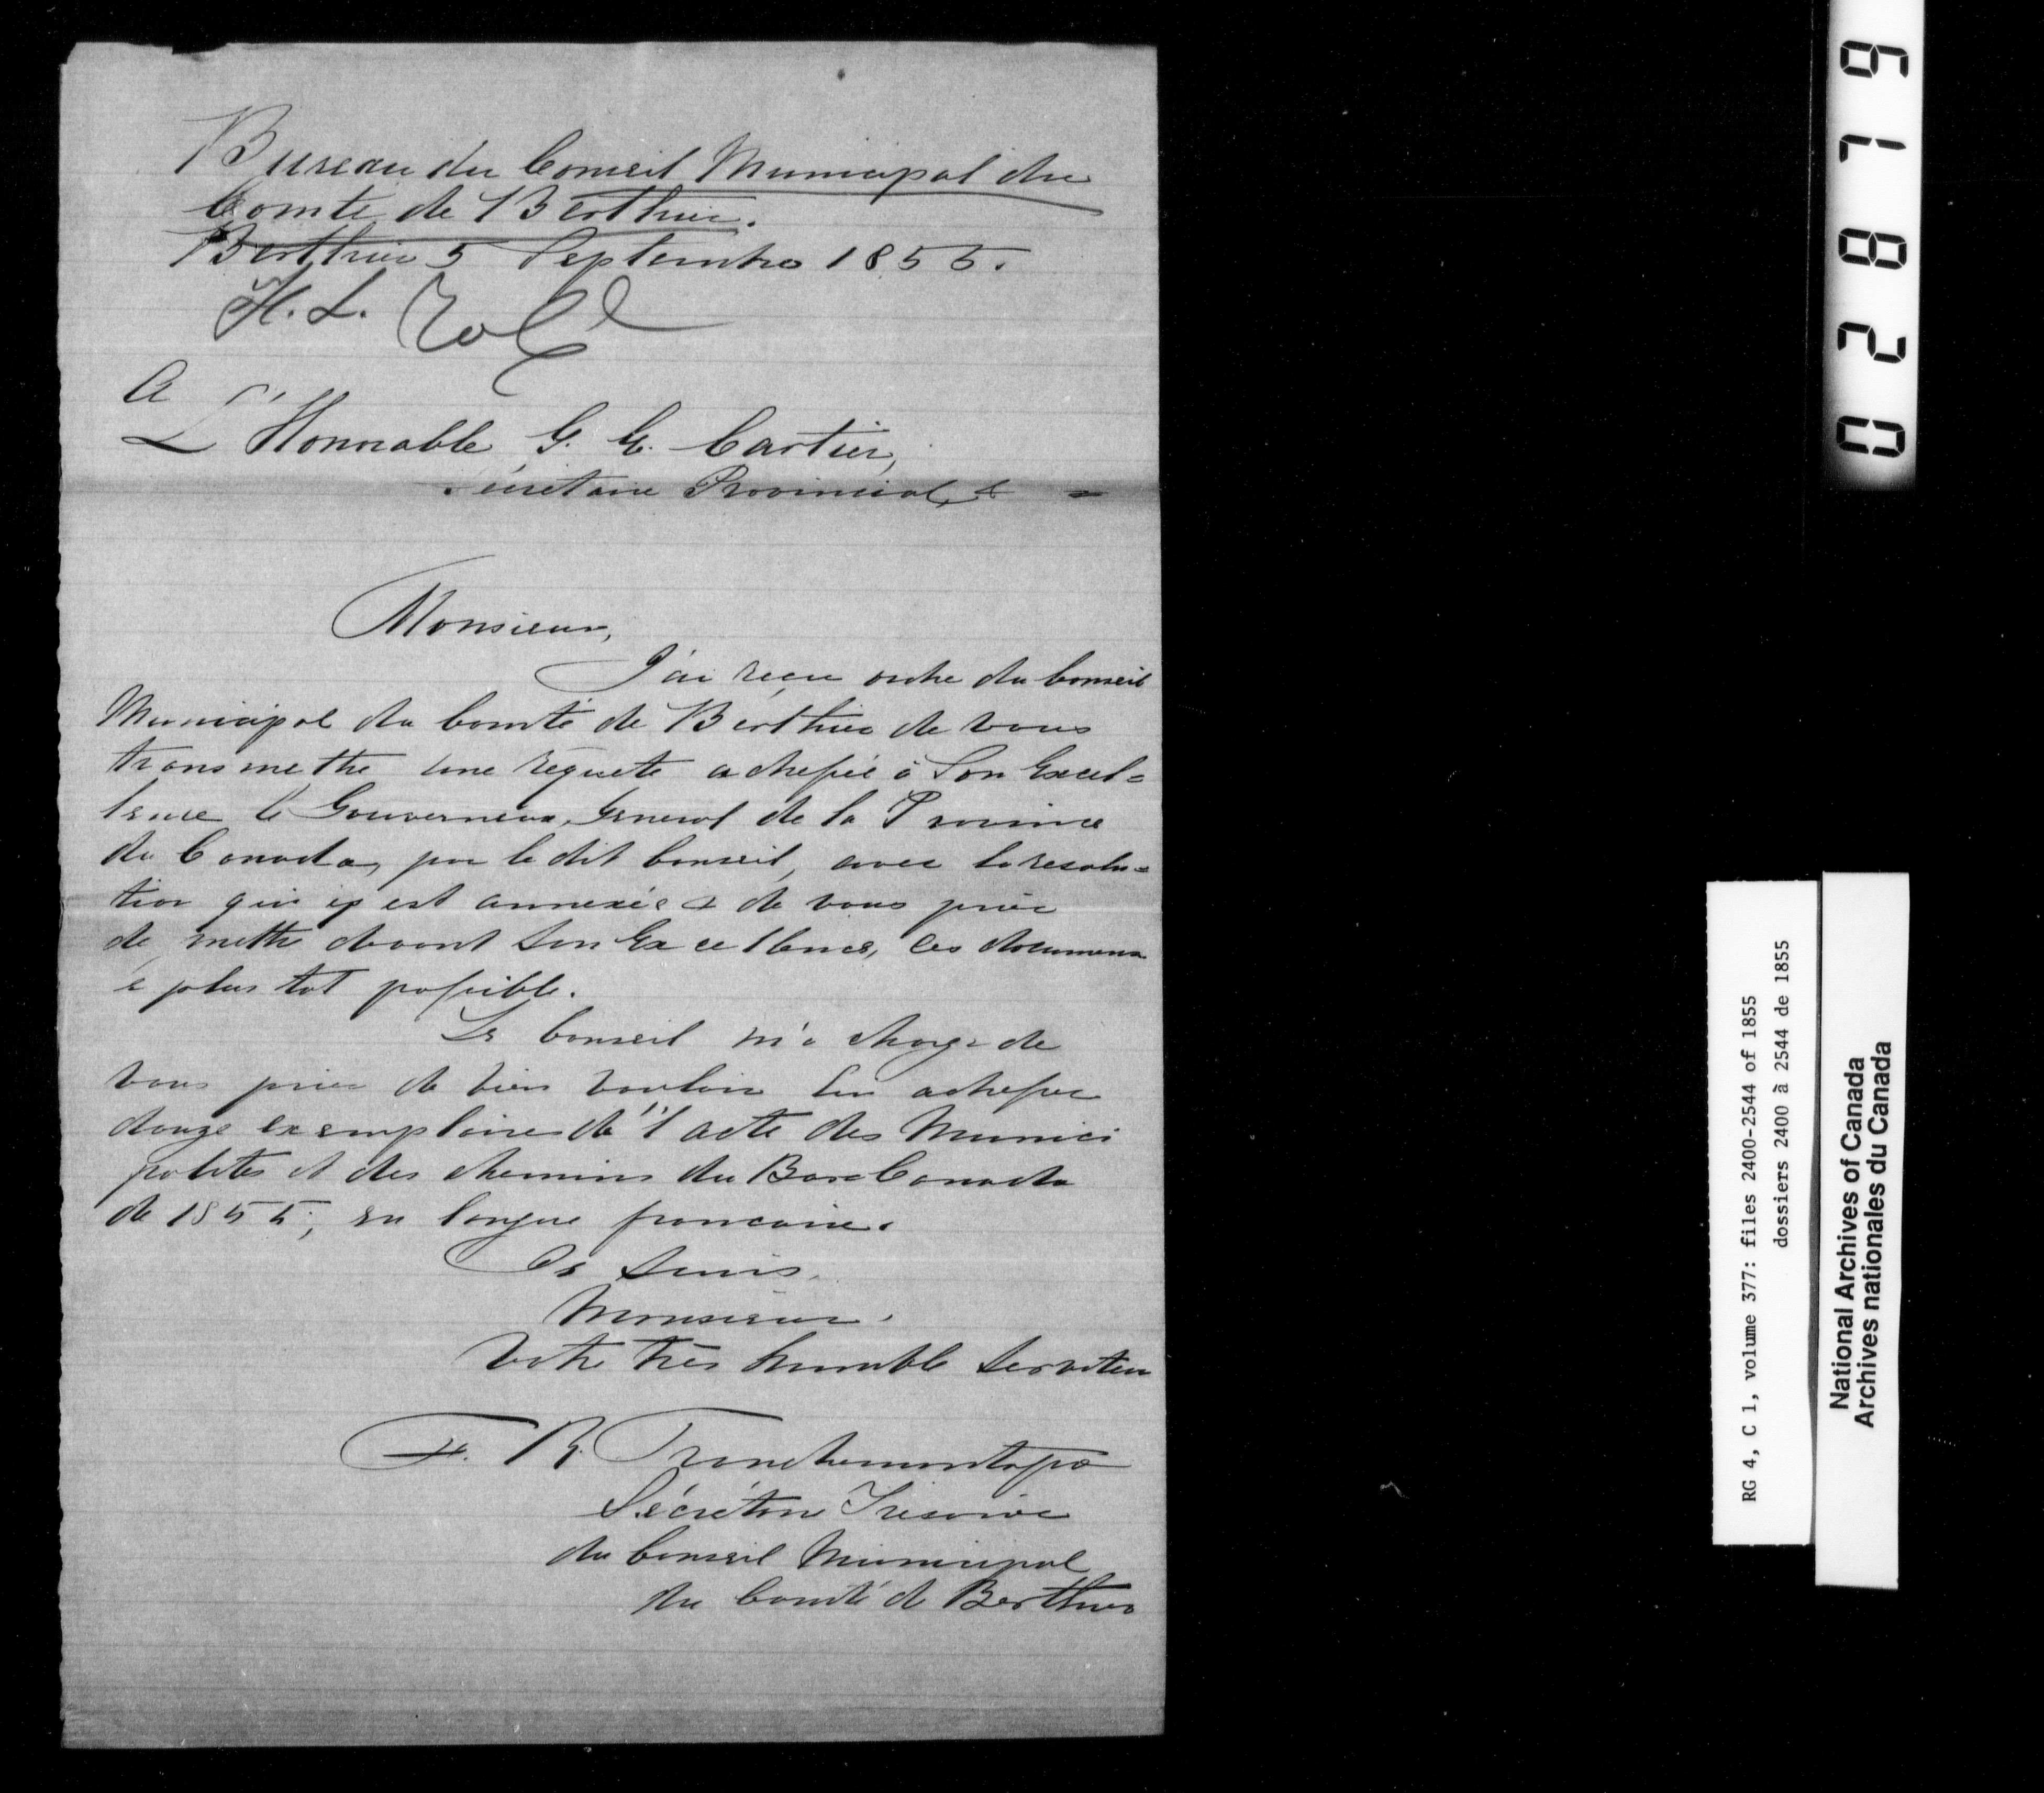 Bureau du Conseil Municipal du
Comté de Berthier.
Berthier 5 Septembre 1855.
H. L.
A
L'Honorable G. E. Cartier,
Secrétaire Provincial, &
Monsieur,
J'ai reçu ordre du Conseil
Municipal du Comté de Berthier de vous
transmettre une requete adressée à Son Excel=
lence le Gouverneur General de la Province
du Canada, par le dit Conseil, avec la resolu=
tion qui y est annexée & de vous prier
de mettre devant Son Excellence, ces documens
le plus tot possible.
Le Conseil m'a chargé de
vous prier de bien vouloir lui adresser
douze exemplaires de l'acte des Munici
palités et des chemins du Bas Canada
de 1855, en langue francaise.
Je suis,
Monsieur,
Votre très humble Serviteur
F. R. Tranchemontagne
Sécrétaire Trésorier
du Conseil Municipal
du Comté de Berthier
02879
RG 4, C 1, volume 377: files 2400-2544 of 1855
dossiers 2400 à 2544 de 1855
National Archives of Canada
Archives nationales du Canada